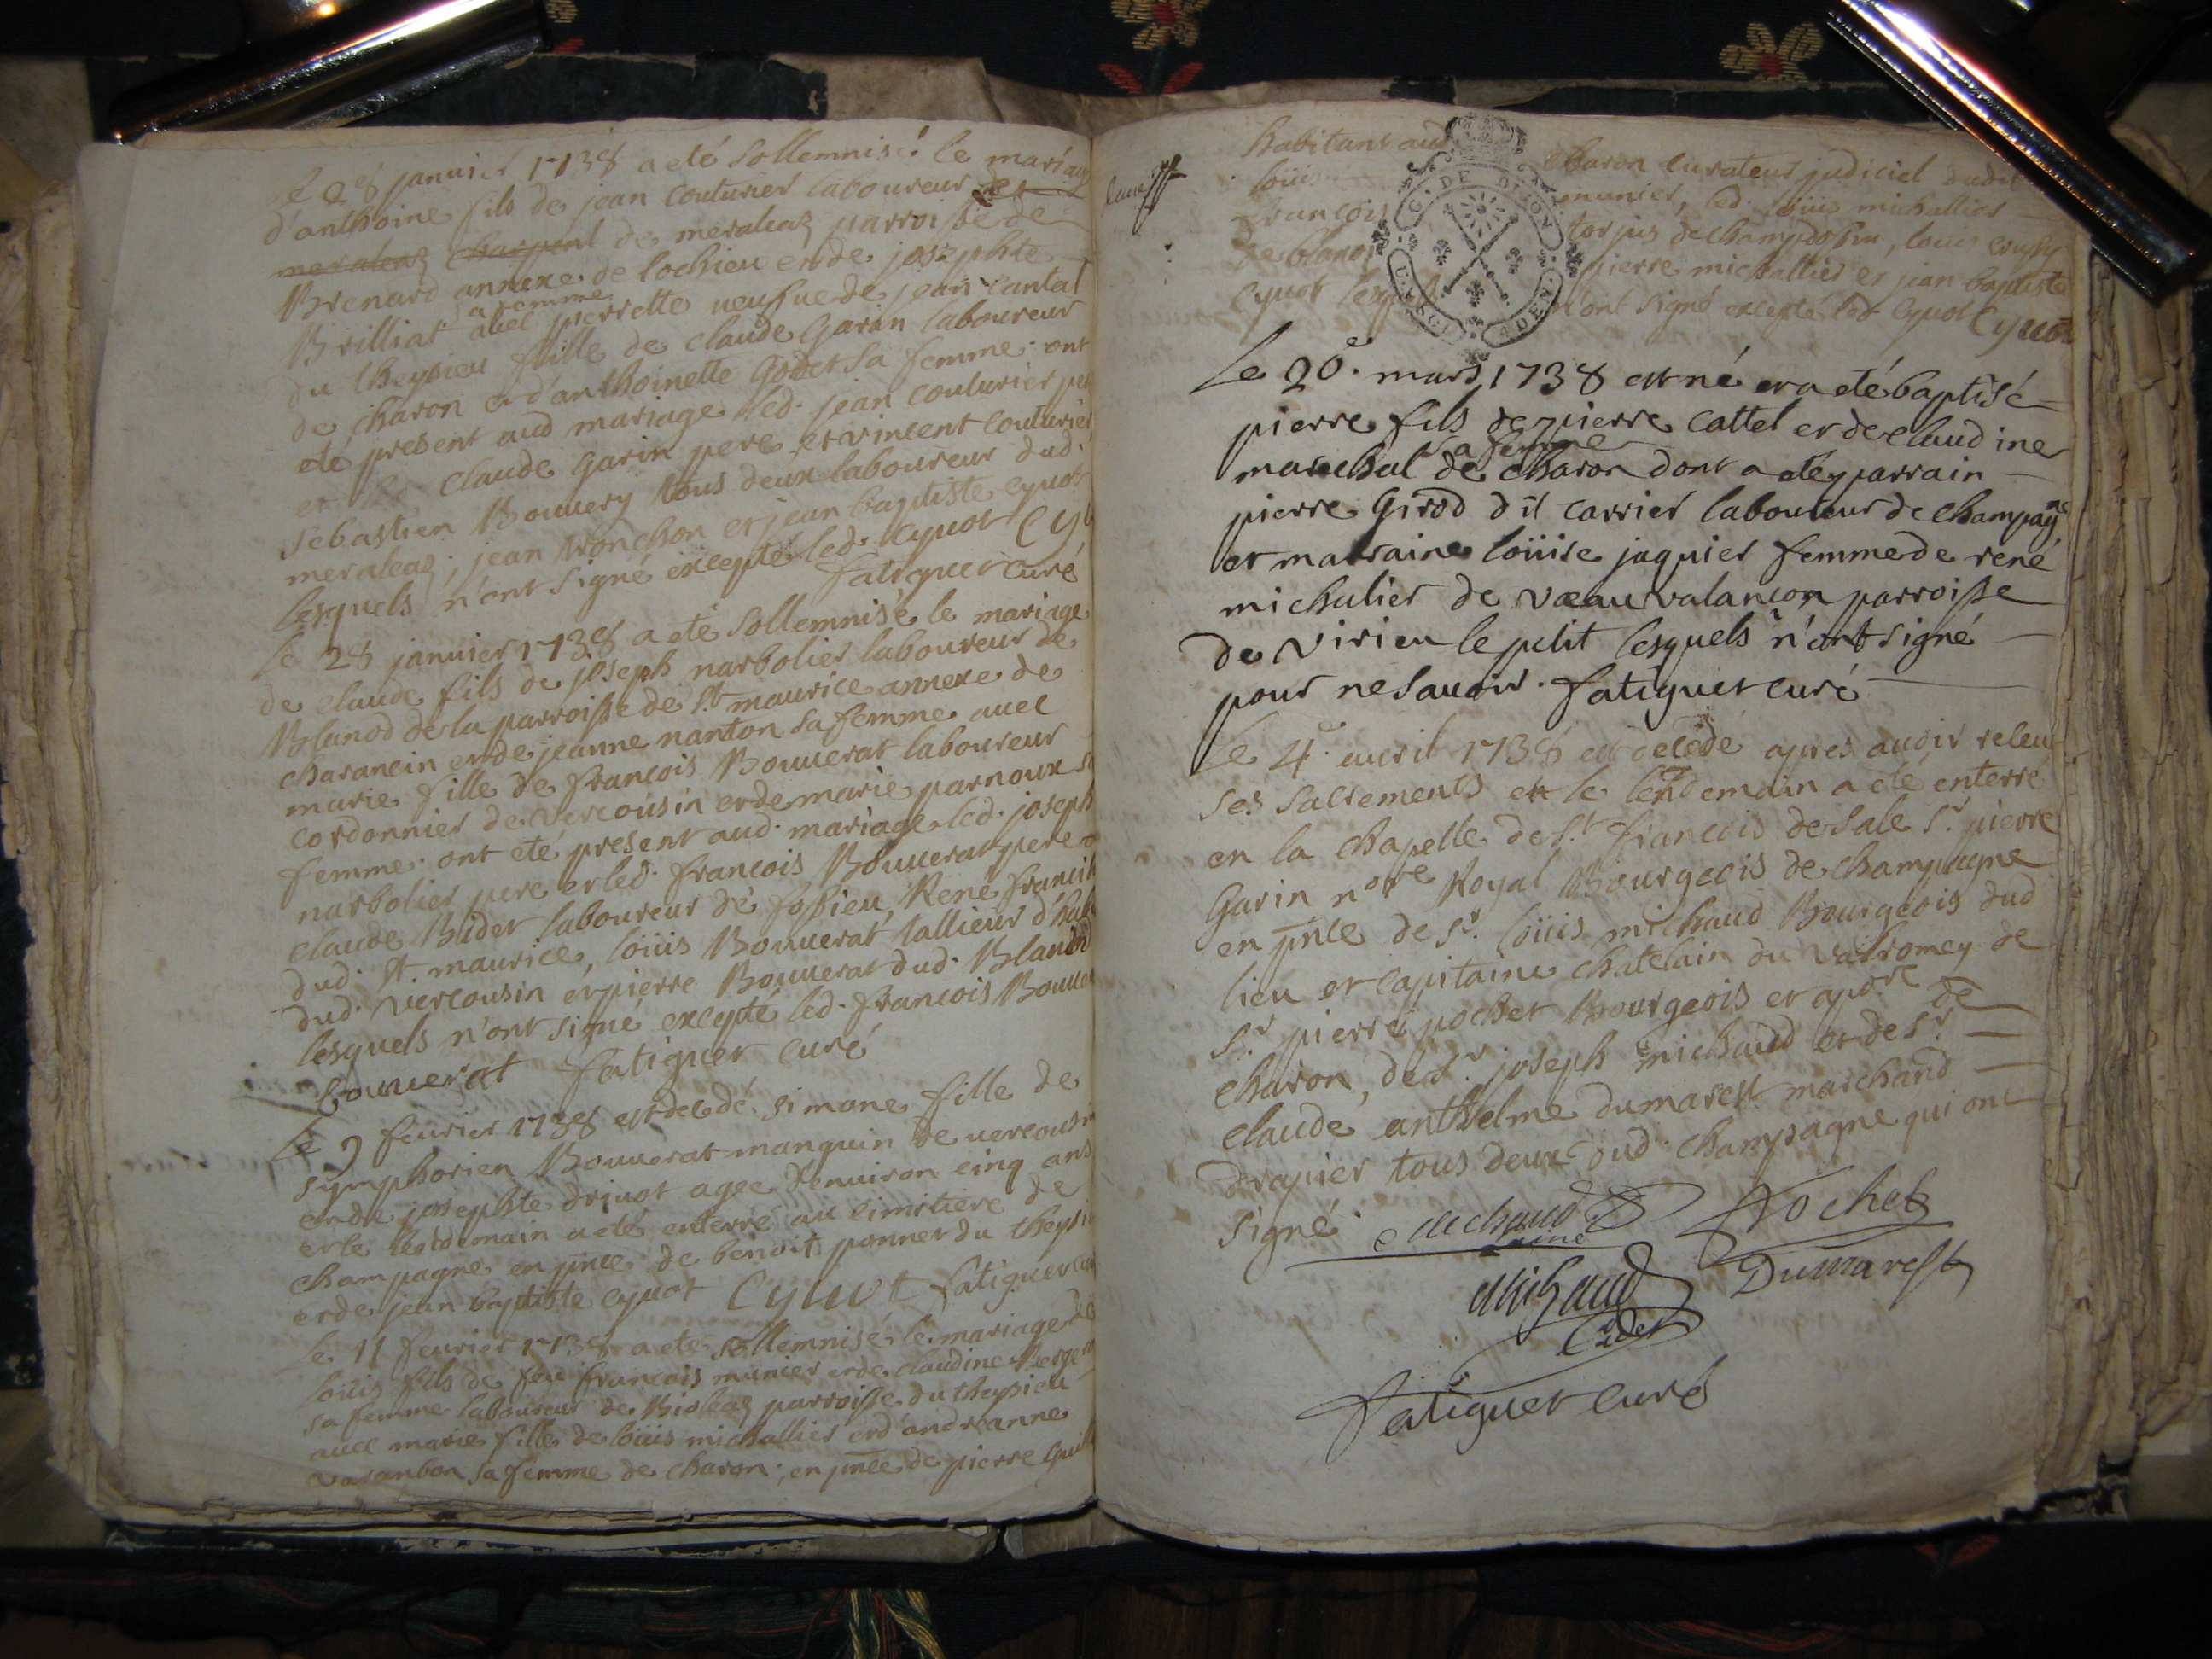 le 28 januier 1738 a eté sollemnisé le mariage
d'anthoine fils de jean couturier laboureur de
meraleaz charpent de meraleaz parroisse de
Brenard annexe de lochieu et de josephte
Brilliat sa femme auec pierrette ueufue de jean cantal
du theysieu fille de claude Garin laboureur
de charon et d'anthoinette Godet sa femme. ont
eté present aud mariage led. jean couturier pere
et claude Garin pere et vincent couturier
sebastien Bouuery tous deux laboureur dud.
meraleaz, jean tronchon et jean baptiste cyuot
lesquels n'ont signé excepté led. Cyuot Cy
fatiguet curé
le 28 januier 1738 a eté sollemnisé le mariage
de claude fils de joseph narbolier laboureur de
Blanod de la parroisse de St. maurice annexe de
charancin et de jeanne nanton sa femme auec
marie fille de françois Bouuerat laboureur
cordonnier de vercousin et de marie parnoux sa
femme. ont eté present aud. mariage led. joseph
narbolier pere et led. françois Bouuerat pere
claude Bidet laboureur de fossieu, René
dud. St. maurice, loüis Bouuerat tallieur d'hab
dud. vercousin et pierre Bouuerat dud. Blanod
lesquels n'ont signé excepté led. françois Bouue
bouuerat fatiguet curé
le 9 feurier 1738 est decedé simone fille de
symphorien Bouuerat manguin de uercousin
et de josephte driuot agee d'enuiron cinq ans
et le lendemain a eté enterré au cimitiere de
champagne en pnce de benoit ponnet du theysieu
et de jean baptiste cyuot Cyuot fatiguet cu
le 11 feurier 1738 a eté sollemnisé le mariage de
loüis fils de feu françois munier et de claudine Berge
sa femme laboureur de Bioleaz parroisse du theysieu
auec marie fille de loüis michallier et d'andreanne
varanbon sa femme de charon, en pnce de pierre
habitant aud charon curateur judiciel dudit
loüis munier, led. loüis michallier
françois de champdossin, louis
de blanod pierre michallier et jean baptiste
cyuot lesquels n'ont signé excepté led Cyuot Cyuot
G. DE DIJON
le 20e. mars 1738 est né et a eté baptisé
pierre fils de pierre cattel et de claudine
marechal sa femme de charon dont a eté parrain
pierre Girod dit carrier laboureur de champagne
et marraine loüise jaquier femme de rené
michalier de vaauvalancon parroisse
de virieu le petit lesquels n'ont signé
pour ne sauoir. fatiguet curé
le 4e. auril 1738 est decedé apres auoir releu
ses sacrements et le lendemain a eté enterré
en la chapelle de St. françois de sale Sr. pierre
Garin notre Royal Bourgeois de champagne
en pnce de Sr. loüis michaud Bourgeois dud
lieu et capitaine chatelain du valromey de
Sr. pierre pochet Bourgeois et apore de
charon, de Sr. joseph michaud et de Sr.
claude anthelme dumarest marchand
drapier tous deux dud. champagne qui ont
signé. Michaud Pochet
ainé
Michaud Dumarest
Cadet
fatiguet curé